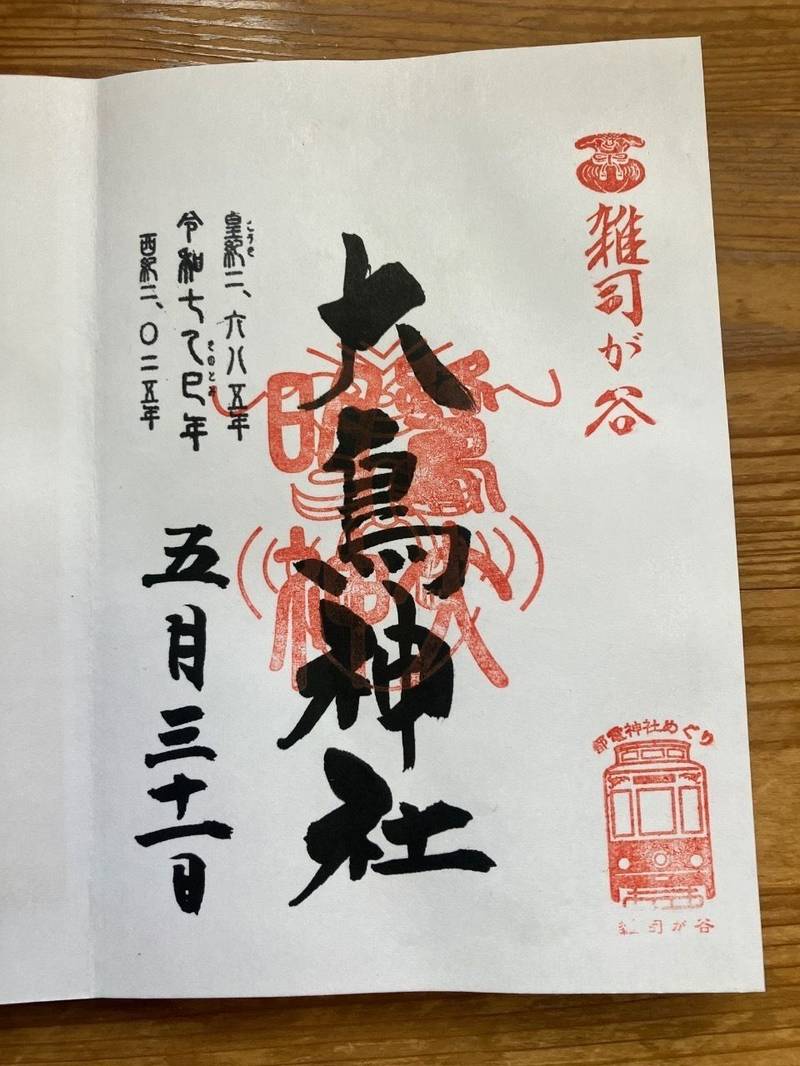 雑司が谷
都電神社めぐり
雑司が谷
大鳥神社
大
明神
こうき
皇紀二、六八五年
きのとみ
令和七乙巳年
西紀二、〇二五年
五月三十一日